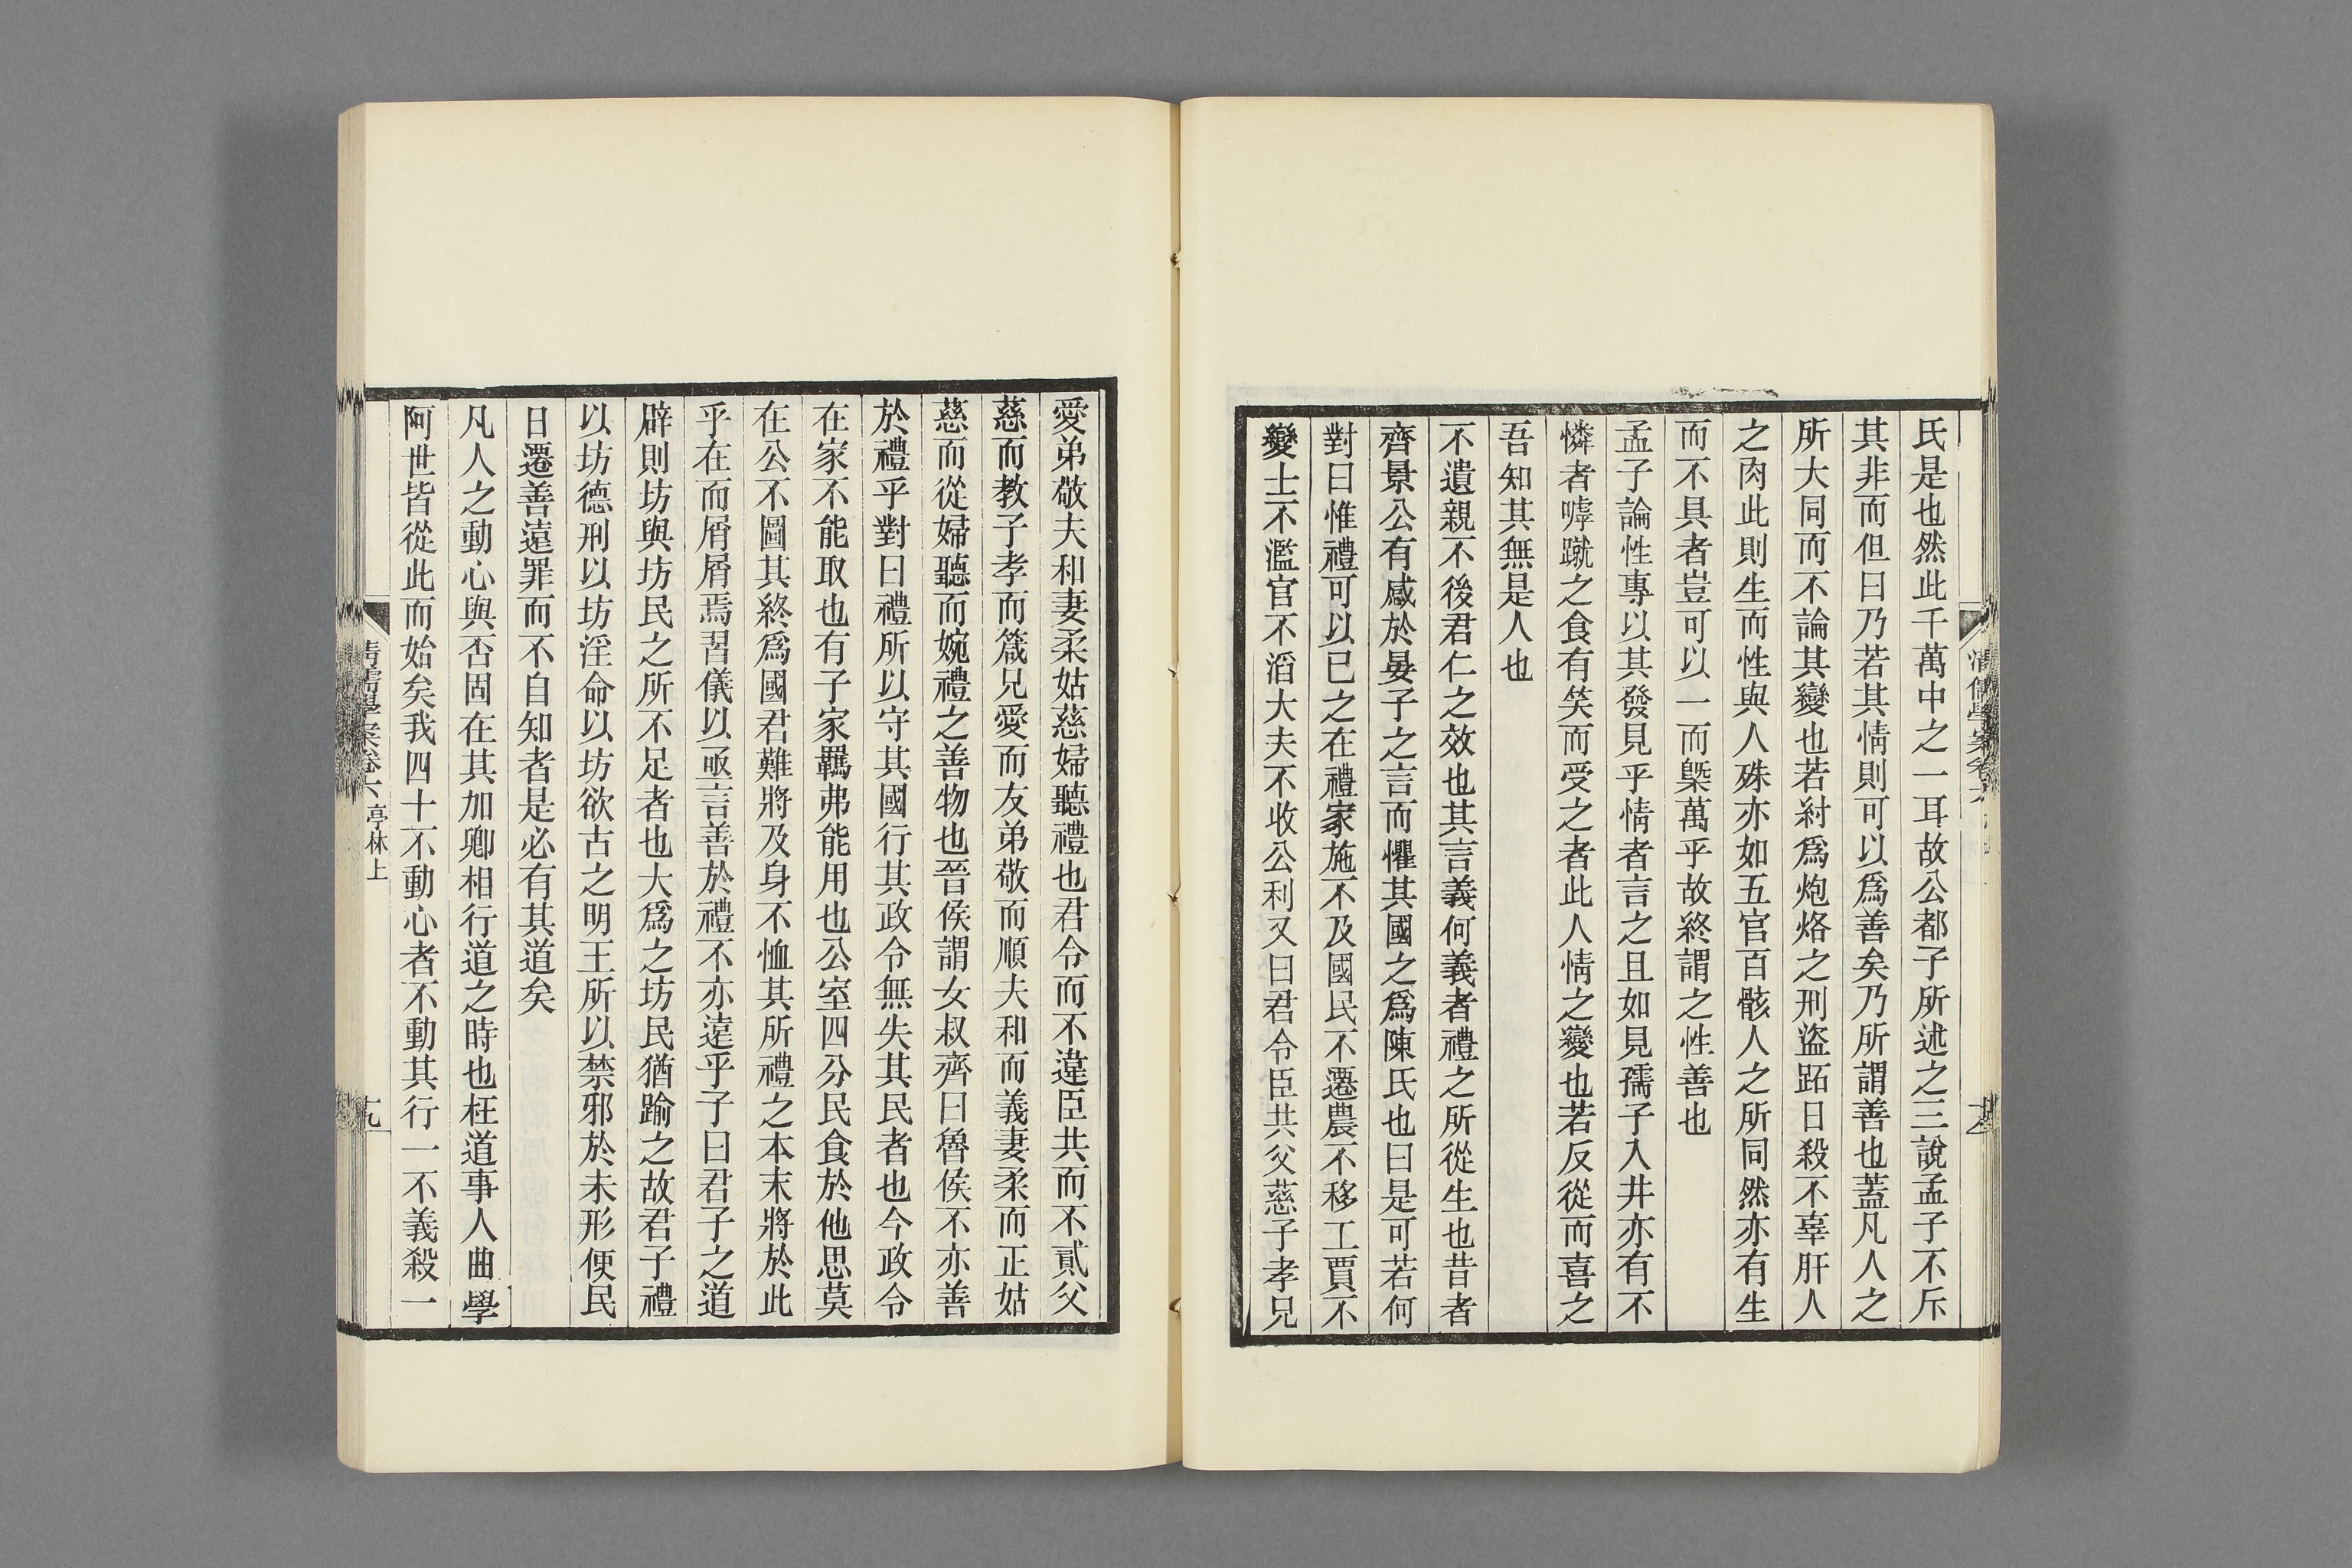 氏是也然此千萬中之一耳故公都子所述之三說孟子不斥
其非而但曰乃若其情則可以爲善矣乃所謂善也蓋凡人之
所大同而不論其變也若紂爲炮烙之刑盜跖日殺不辜肝人
之肉此則生而性與人殊亦如五官百骸人之所同然亦有生
而不具者豈可以一而槩萬乎故終謂之性善也
孟子論性專以其發見乎情者言之且如見孺子入井亦有不
憐者嘑蹴之食有笑而受之者此人情之變也若反從而喜之
吾知其無是人也
不遺親不後君仁之效也其言義何義者禮之所從生也昔者
齊景公有感於晏子之言而懼其國之爲陳氏也曰是可若何
對曰惟禮可以已之在禮家施不及國民不遷農不移工賈不
變士不濫官不滔大夫不收公利又曰君令臣共父慈子孝兄
愛弟敬夫和妻柔姑慈婦聽禮也君令而不違臣共而不貳父
慈而教子孝而箴兄愛而友弟敬而順夫和而義妻柔而正姑
慈而從婦聽而婉禮之善物也晉侯謂女叔齊曰魯侯不亦善
於禮乎對曰禮所以守其國行其政令無失其民者也今政令
在家不能取也有子家羈弗能用也公室四分民食於他思莫
在公不圖其終爲國君難將及身不恤其所禮之本末將於此
乎在而屑屑焉習儀以亟言善於禮不亦遠乎子曰君子之道
辟則坊與坊民之所不足者也大爲之坊民猶踰之故君子禮
以坊德刑以坊淫命以坊欲古之明王所以禁邪於未形使民
日遷善遠罪而不自知者是必有其道矣
凡人之動心與否固在其加卿相行道之時也枉道事人曲學
阿世皆從此而始矣我四十不動心者不動其行一不義殺一
清儒學案卷六 亭林上
十九